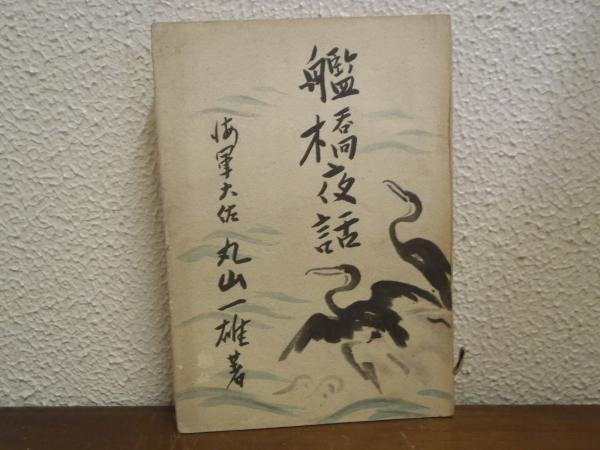 艦橋夜話
海軍大佐 丸山一雄著